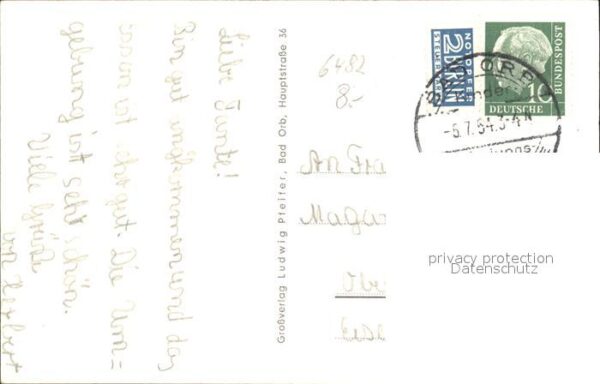 Liebe Tante!
Bin gut angekommen und das
ist gut. Die Um=
gebung ist sehr schön.
Viele Grüße
von Herbert
Großverlag Ludwig Pfeifer, Bad Orb, Hauptstraße 36
6482
8.-
NOTOPFER
2 BERLIN
STEUERMARKE
DEUTSCHE
BUNDESPOST
10
BAD ORB
-5.7.54.3-4 N
An Fra
Maga
Obe
privacy protection
Datenschutz